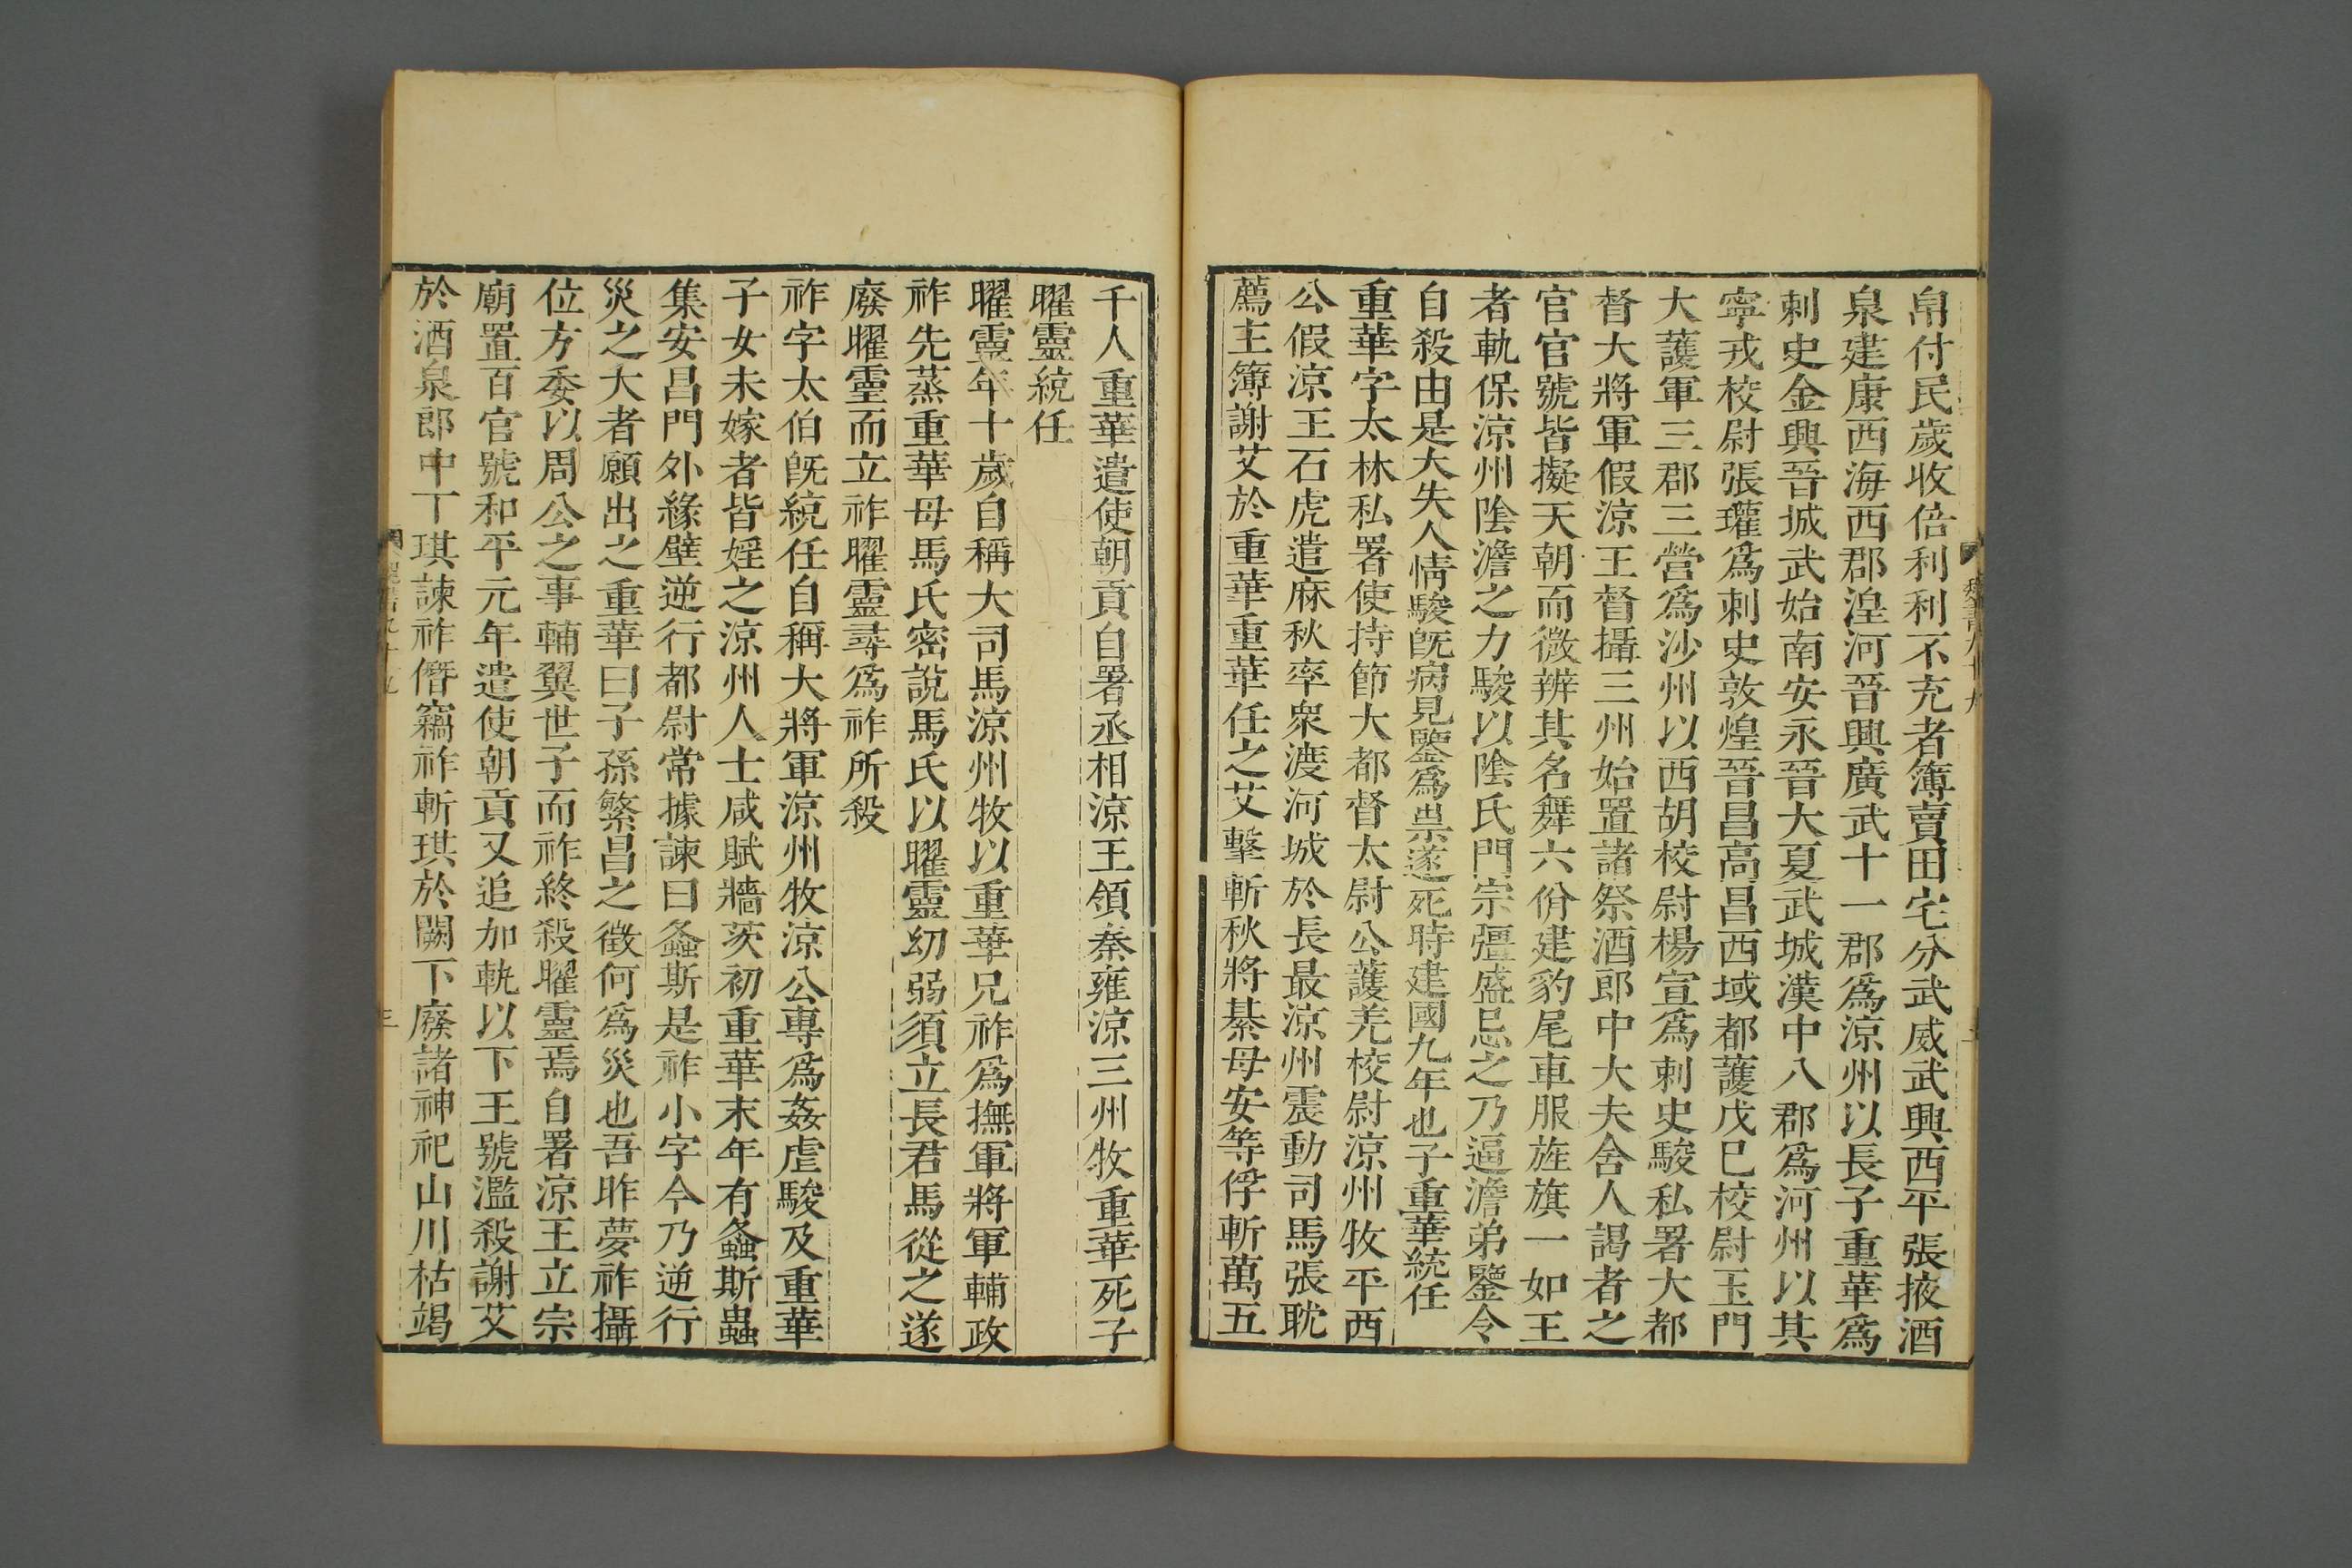 帛付民歲收倍利利不充者簿賣田宅分武威武興西平張掖酒
泉建康西海西郡湟河晉興廣武十一郡爲涼州以長子重華爲
刺史金興晉城武始南安永晉大夏武城漢中八郡爲河州以其
寧戎校尉張瓘爲刺史敦煌晉昌高昌西域都護戊巳校尉玉門
大護軍三郡三營爲沙州以西胡校尉楊宣爲刺史駿私署大都
督大將軍假涼王督攝三州始置諸祭酒郎中大夫舍人謁者之
官官號皆擬天朝而微辨其名舞六佾建豹尾車服旌旗一如王
者軌保涼州陰澹之力駿以陰氏門宗彊盛忌之乃逼澹弟鑒令
自殺由是大失人情駿旣病見鑒爲祟遂死時建國九年也子重華統任
重華字太林私署使持節大都督太尉公護羌校尉涼州牧平西
公假涼王石虎遣麻秋率衆渡河城於長最涼州震動司馬張耽
薦主簿謝艾於重華重華任之艾擊斬秋將綦母安等俘斬萬五
千人重華遣使朝貢自署丞相涼王領秦雍涼三州牧重華死子
曜靈統任
曜靈年十歲自稱大司馬涼州牧以重華兄祚爲撫軍將軍輔政
祚先蒸重華母馬氏密說馬氏以曜靈幼弱須立長君馬從之遂
廢曜靈而立祚曜靈尋爲祚所殺
祚字太伯旣統任自稱大將軍涼州牧涼公專爲姦虐駿及重華
子女未嫁者皆婬之涼州人士咸賦牆茨初重華末年有螽斯蟲
集安昌門外緣壁逆行都尉常據諫曰螽斯是祚小字今乃逆行
災之大者願出之重華曰子孫繁昌之徵何爲災也吾昨夢祚攝
位方委以周公之事輔翼世子而祚終殺曜靈焉自署涼王立宗
廟置百官號和平元年遣使朝貢又追加軌以下王號濫殺謝艾
於酒泉郎中丁琪諫祚僭竊祚斬琪於闕下廢諸神祀山川枯竭